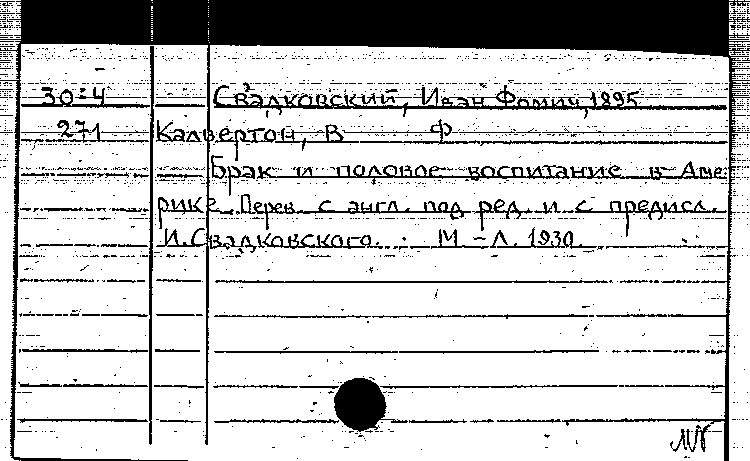 30-4 Свадковский, Иван Фомич, 1895
271 Кальвертон, В Ф
Брак и половое воспитание в Аме
рике. Перев. с англ. под ред. и с предисл.
И. Свадковского. М-Л. 1930.